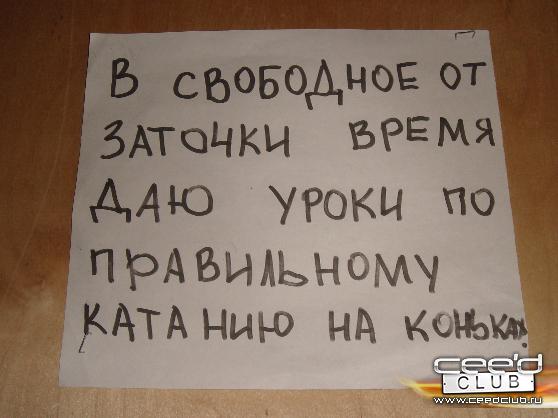 В СВОБОДНОЕ ОТ
ЗАТОЧКИ ВРЕМЯ
ДАЮ УРОКИ ПО
ПРАВИЛЬНОМУ
КАТАНИЮ НА КОНЬКАХ!
cee'd
CLUB
www.ceedclub.ru